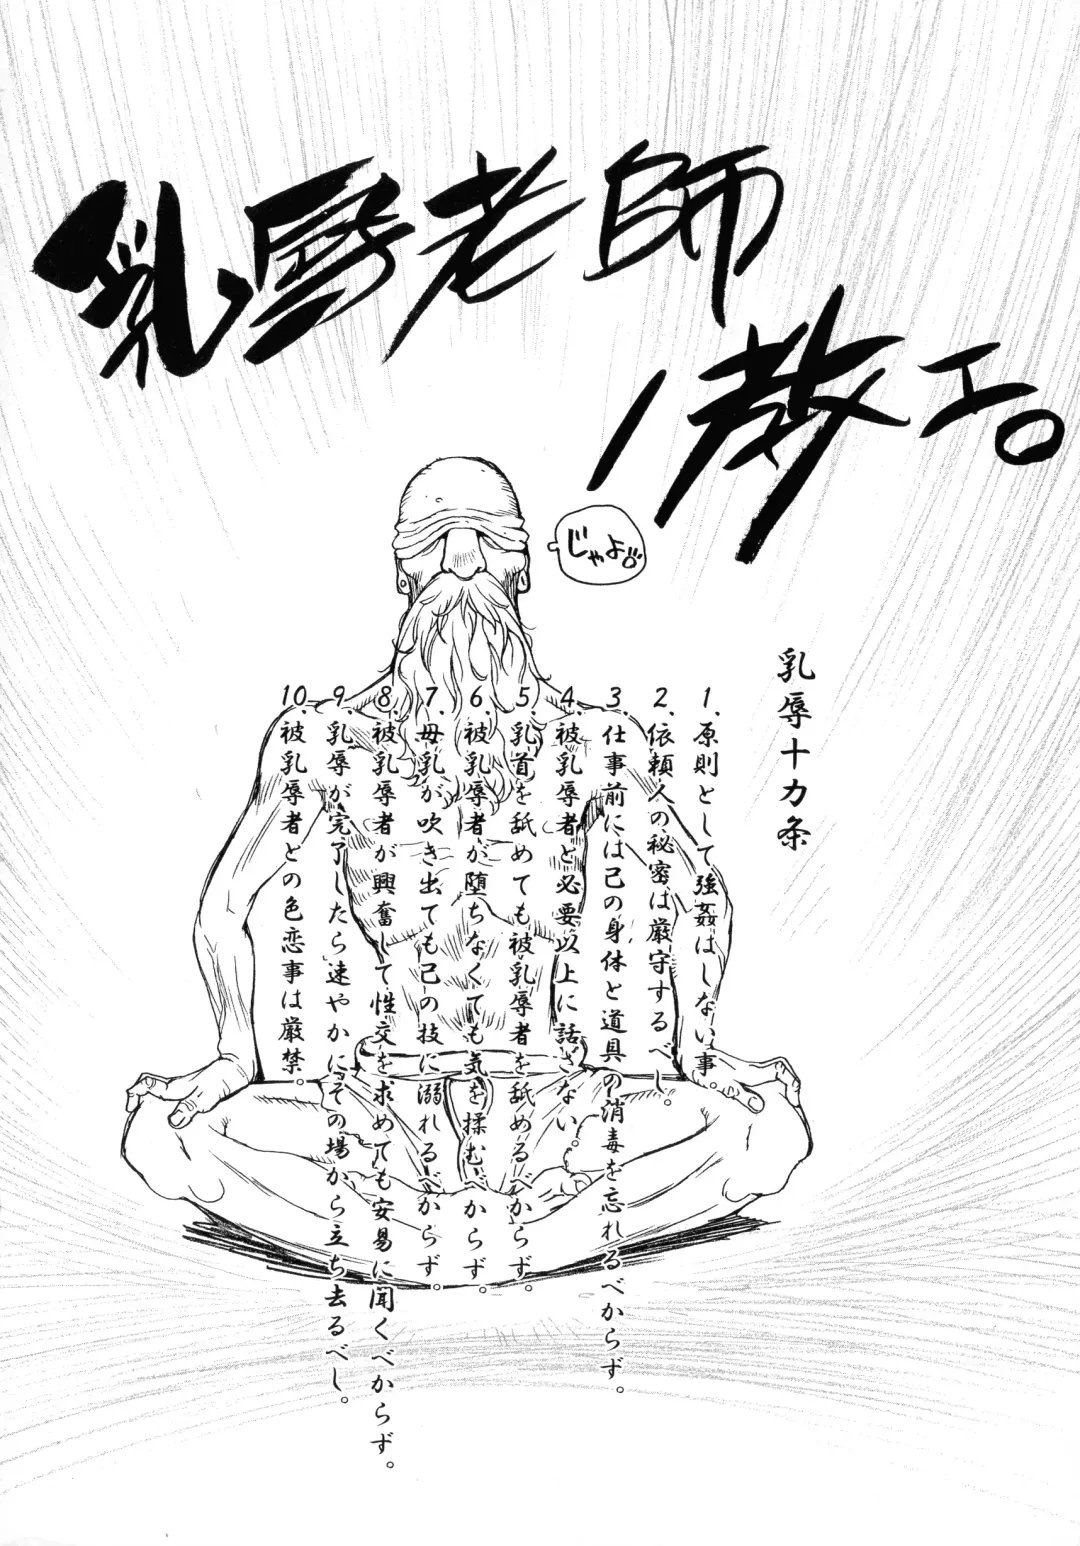 乳辱老師
ノ教エ。
じゃよ。
乳辱十カ条
1. 原則として強姦はしない事。
2. 依頼人の秘密は厳守するべし。
3. 仕事前には己の身体と道具の消毒を忘れるべからず。
4. 被乳辱者と必要以上に話さない。
5. 乳首を舐めても被乳辱者を舐めるべからず。
6. 被乳辱者が堕ちなくても気を揉むべからず。
7. 母乳が吹き出ても己の技に溺れるべからず。
8. 被乳辱者が興奮して性交を求めても安易に聞くべからず。
9. 乳辱が完了したら速やかにその場から立ち去るべし。
10. 被乳辱者との色恋事は厳禁。